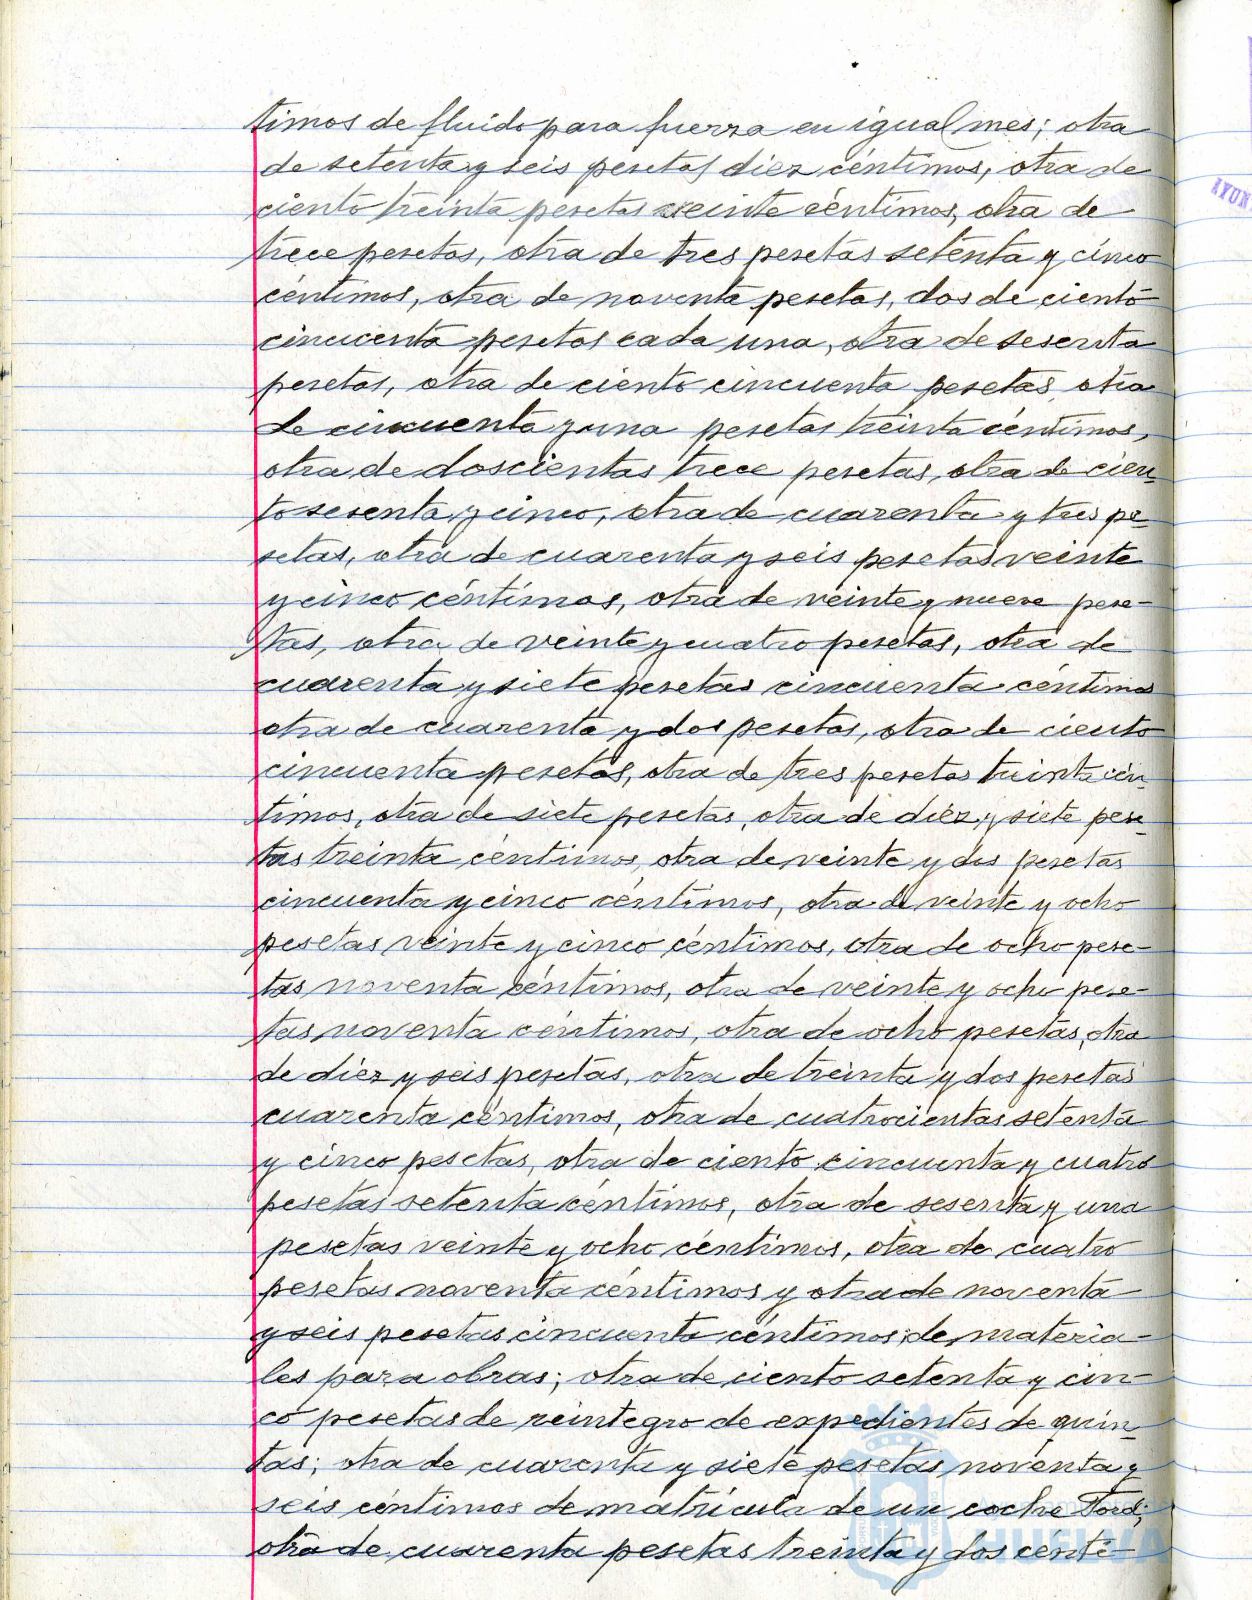 timos de fluido para fuerza en igual mes; otra
de setenta y seis pesetas diez céntimos, otra de
ciento treinta pesetas veinte céntimos, otra de
trece pesetas, otra de tres pesetas setenta y cinco
céntimos, otra de noventa pesetas, dos de ciento
cincuenta pesetas cada una, otra de sesenta
pesetas, otra de ciento cincuenta pesetas, otra
de cincuenta y una pesetas treinta céntimos,
otra de doscientas trece pesetas, otra de cien-
to sesenta y cinco, otra de cuarenta y tres pe
setas, otra de cuarenta y seis pesetas veinte
y cinco céntimos, otra de veinte y nueve pese-
tas, otra de veinte y cuatro pesetas, otra de
cuarenta y siete pesetas cincuenta céntimos
otra de cuarenta y dos pesetas, otra de ciento
cincuenta pesetas, otra de tres pesetas treinta cén-
timos, otra de siete pesetas, otra de diez y siete pese-
tas treinta céntimos, otra de veinte y dos pesetas
cincuenta y cinco céntimos, otra de veinte y ocho
pesetas veinte y cinco céntimos, otra de ocho pese-
tas noventa céntimos, otra de veinte y ocho pese-
tas noventa céntimos, otra de ocho pesetas, otra
de diez y seis pesetas, otra de treinta y dos pesetas
cuarenta céntimos, otra de cuatrocientas setenta
y cinco pesetas, otra de ciento cincuenta y cuatro
pesetas setenta céntimos, otra de sesenta y una
pesetas veinte y ocho céntimos, otra de cuatro
pesetas noventa céntimos y otra de noventa
y seis pesetas cincuenta céntimos, de materia-
les para obras; otra de ciento setenta y cin-
co pesetas de reintegro de expedientes de quin-
tas; otra de cuarenta y siete pesetas noventa y
seis céntimos de matrícula de un coche Ford;
otra de cuarenta pesetas treinta y dos cénti-
AYUN
HUELVA